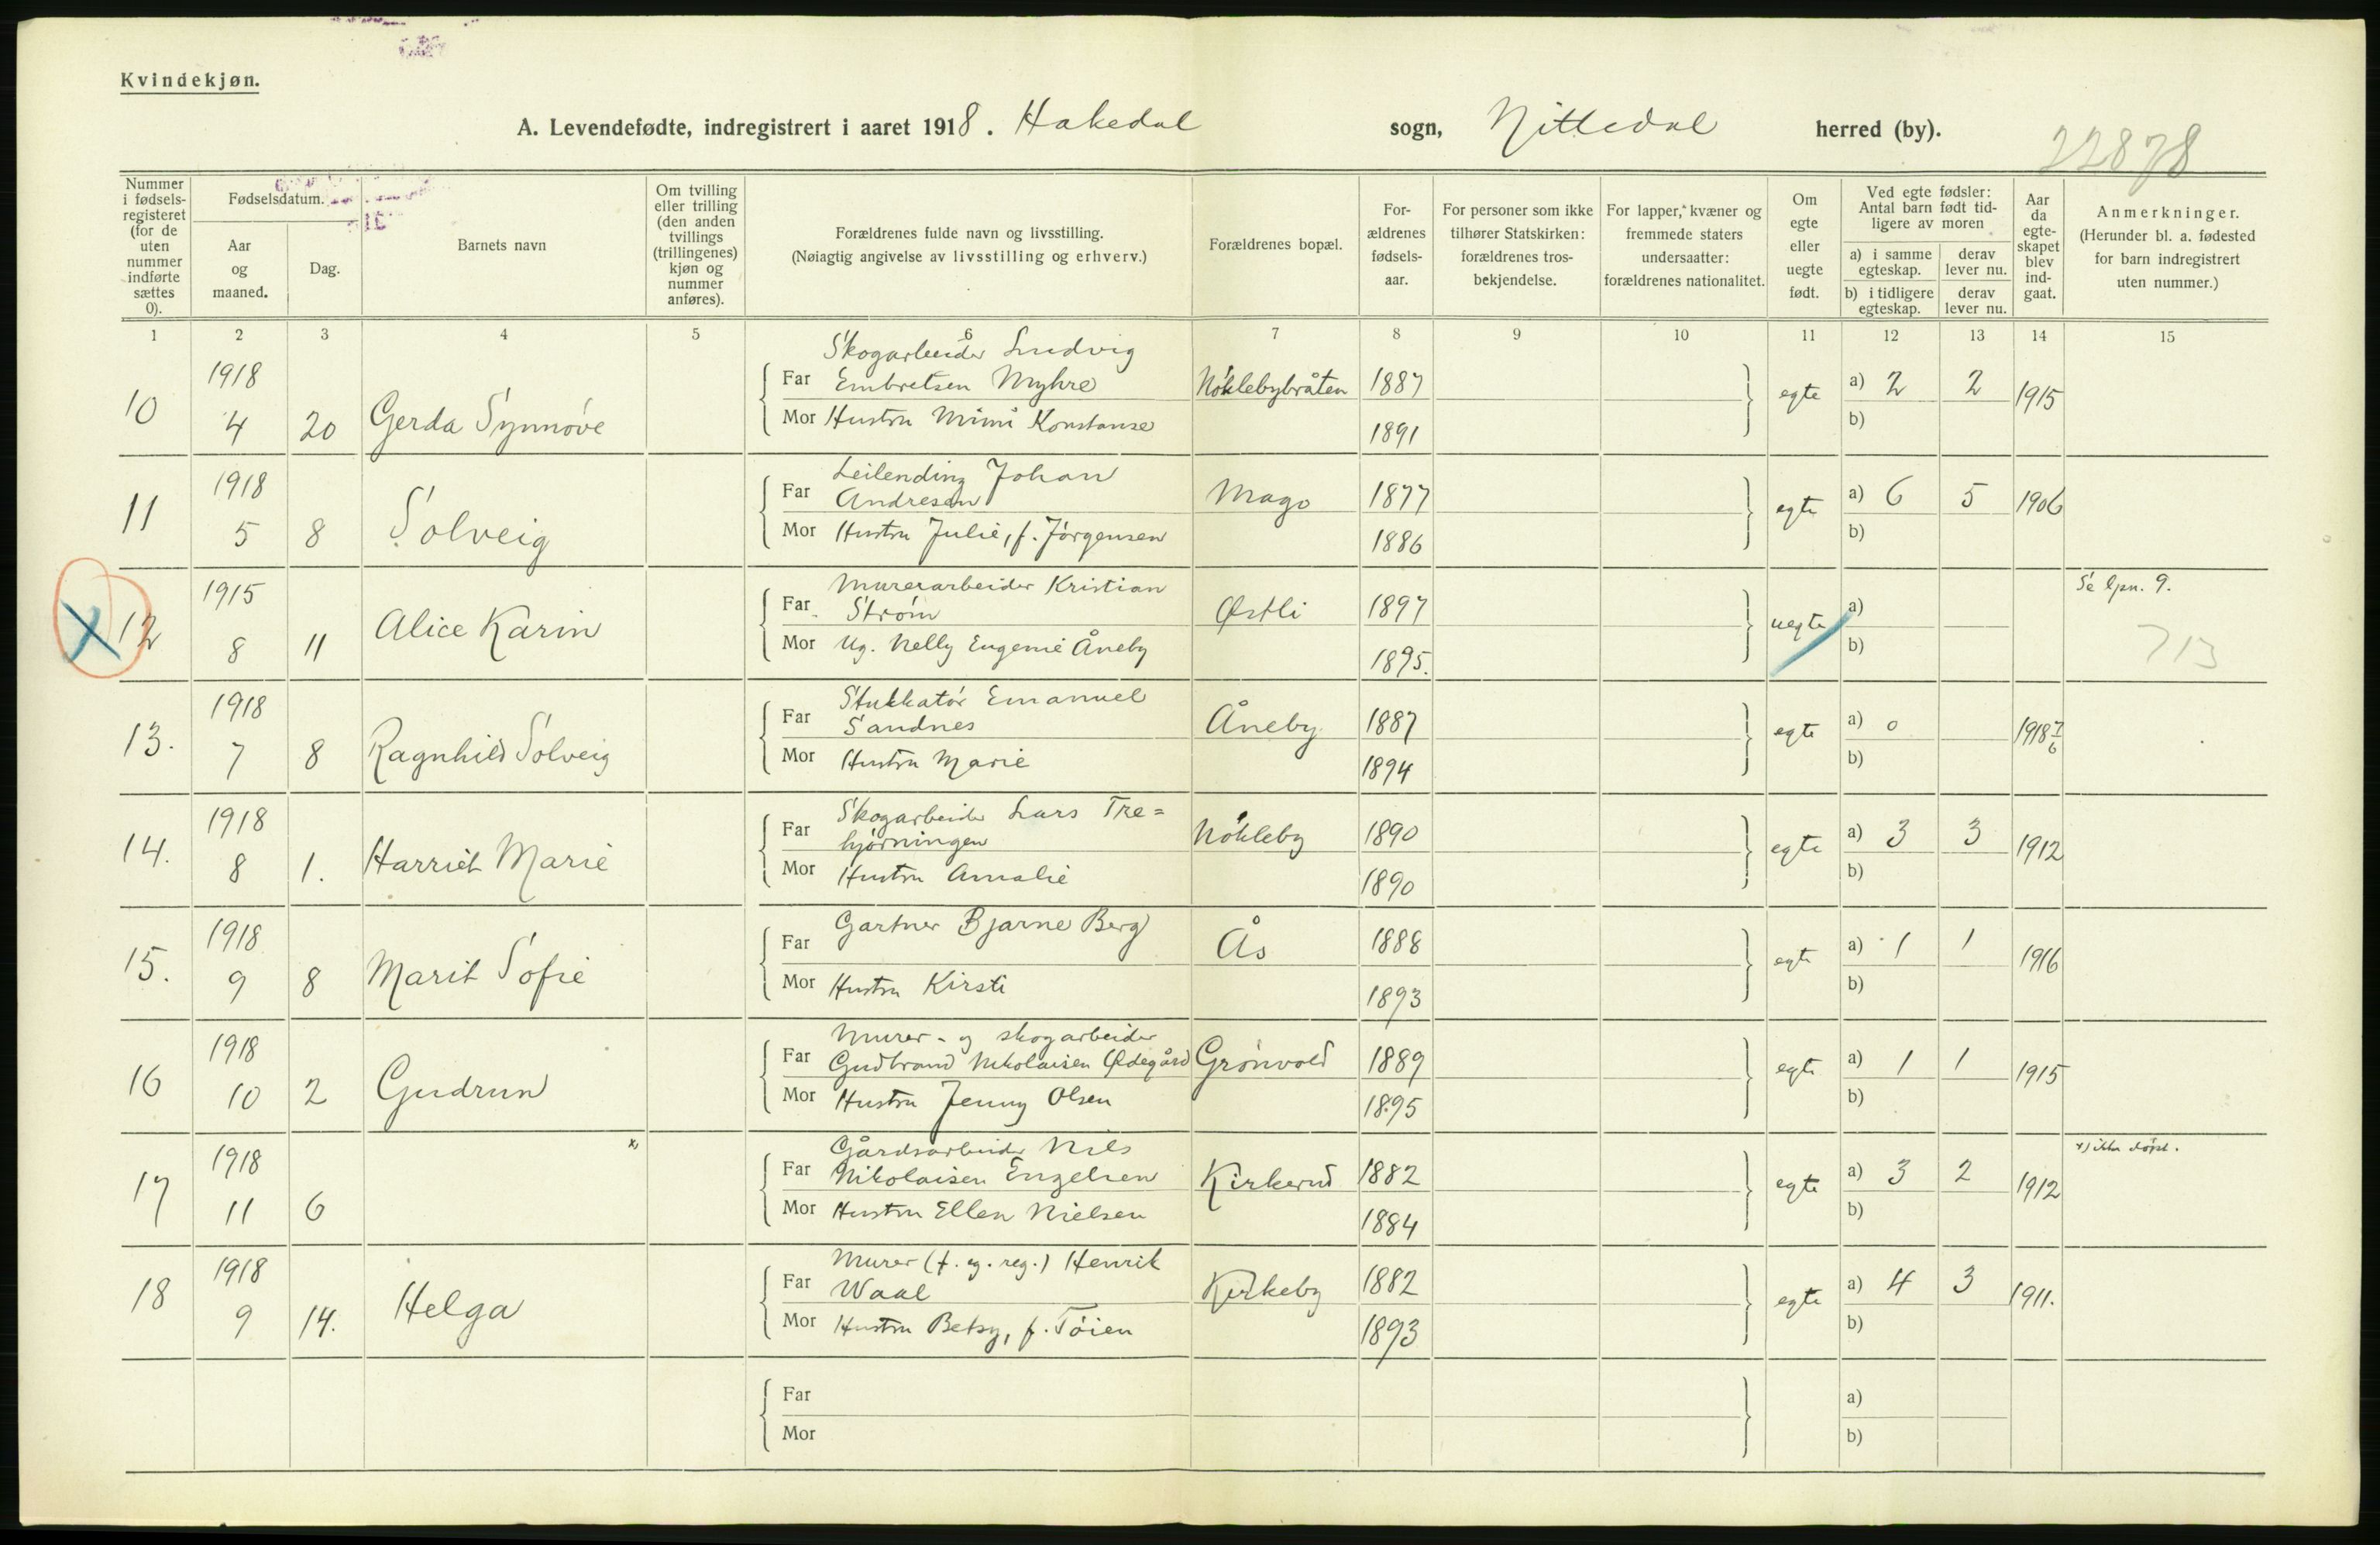 Kvindekjøn.
A. Levendefødte, indregistrert i aaret 1918. Hakedal sogn, Nittedal herred (by).
22878
Nummer i fødsels-registeret (for de uten nummer indførte sættes 0).
Fødselsdatum.
Aar og maaned.
Dag.
Barnets navn
Om tvilling eller trilling (den anden tvillings (trillingenes) kjøn og nummer anføres).
Forældrenes fulde navn og livsstilling.
(Nøiagtig angivelse av livsstilling og erhverv.)
Forældrenes bopæl.
For-ældrenes fødsels-aar.
For personer som ikke tilhører Statskirken: forældrenes tros-bekjendelse.
For lapper, kvæner og fremmede staters undersaatter: forældrenes nationalitet.
Om egte eller uegte født.
Ved egte fødsler: Antal barn født tid-ligere av moren
a) i samme egteskap.
derav lever nu.
b) i tidligere egteskap.
derav lever nu.
Aar da egte-skapet blev ind-gaat.
Anmerkninger.
(Herunder bl. a. fødested for barn indregistrert uten nummer.)
1 2 3 4 5 6 7 8 9 10 11 12 13 14 15
10 1918 4 20 Gerda Synnøve
Skogarbeider Ludvig
Far Embretsen Myhre Nøklebybråten 1887 egte a) 2 2 1915
Mor Hustru Mimi Konstanse 1891 b)
11 1918 5 8 Solveig
Leilending Johan
Far Andresen Mago 1877 egte a) 6 5 1906
Mor Hustru Julie, f. Jørgensen 1886 b)
X 12 1915 8 11 Alice Karin
Murerarbeider Kristian Se lpn. 9.
Far Strøm Østli 1897 uegte a)
Mor Ug. Nelly Eugenie Åneby 1895. b) 713
13. 1918 7 8 Ragnhild Solveig
Stukkatør Emanuel
Far Sandnes Åneby 1887 egte a) 0 1918 7/6
Mor Hustru Marie 1894 b)
14. 1918 8 1. Harriet Marie
Skogarbeider Lars Tre=
Far hjørningen Nøkleby 1890 egte a) 3 3 1912
Mor Hustru Amalie 1890 b)
15. 1918 9 8 Marit Sofie
Far Gartner Bjarne Berg Ås 1888 egte a) 1 1 1916
Mor Hustru Kirsti 1893 b)
16 1918 10 2 Gudrun
Murer- og skogarbeider
Far Gudbrand Nikolaisen Ødegård Grønvold 1889 egte a) 1 1 1915
Mor Hustru Jenny Olsen 1895 b)
17 1918 11 6 x)
Gårdsarbeider Nils x) ikke døpt.
Far Nikolaisen Engelsen Kirkerud 1882 egte a) 3 2 1912
Mor Hustru Ellen Nielsen 1884 b)
18 1918 9 14. Helga
Murer (f. eg. reg.) Henrik
Far Waal Kirkeby 1882 egte a) 4 3 1911.
Mor Hustru Betsy, f. Tøien 1893 b)
Far a)
Mor b)